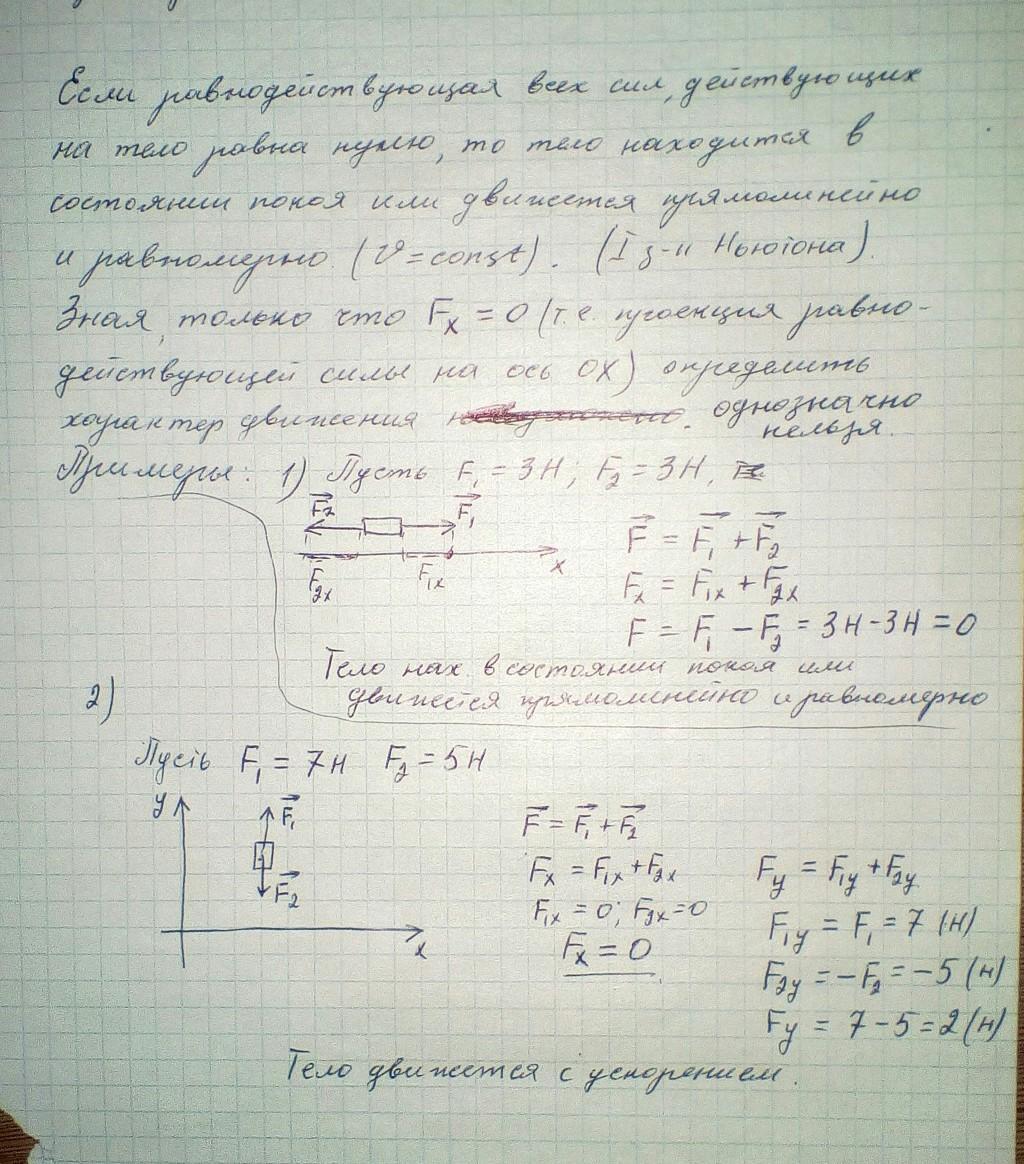 Если равнодействующая всех сил, действующих
на тело равна нулю, то тело находится в
состоянии покоя или движется прямолинейно
и равномерно. (V = const). (I з-н Ньютона).
Зная, только что Fx = 0 (т.е. проекция равно-
действующей силы на ось OX) определить
характер движения однозначно
нельзя.
Примеры: 1) Пусть F₁ = 3Н; F₂ = 3Н,
F⃗₂ F⃗₁
x
F₂x F₁x
F⃗ = F⃗₁ + F⃗₂
Fx = F₁x + F₂x
F = F₁ − F₂ = 3Н − 3Н = 0
Тело нах. в состоянии покоя или
движется прямолинейно и равномерно
2)
Пусть F₁ = 7Н F₂ = 5Н
y
F⃗₁
F⃗₂
x
F⃗ = F⃗₁ + F⃗₂
Fx = F₁x + F₂x
F₁x = 0; F₂x = 0
Fx = 0
Fy = F₁y + F₂y
F₁y = F₁ = 7 (Н)
F₂y = −F₂ = −5 (Н)
Fy = 7 − 5 = 2 (Н)
Тело движется с ускорением.